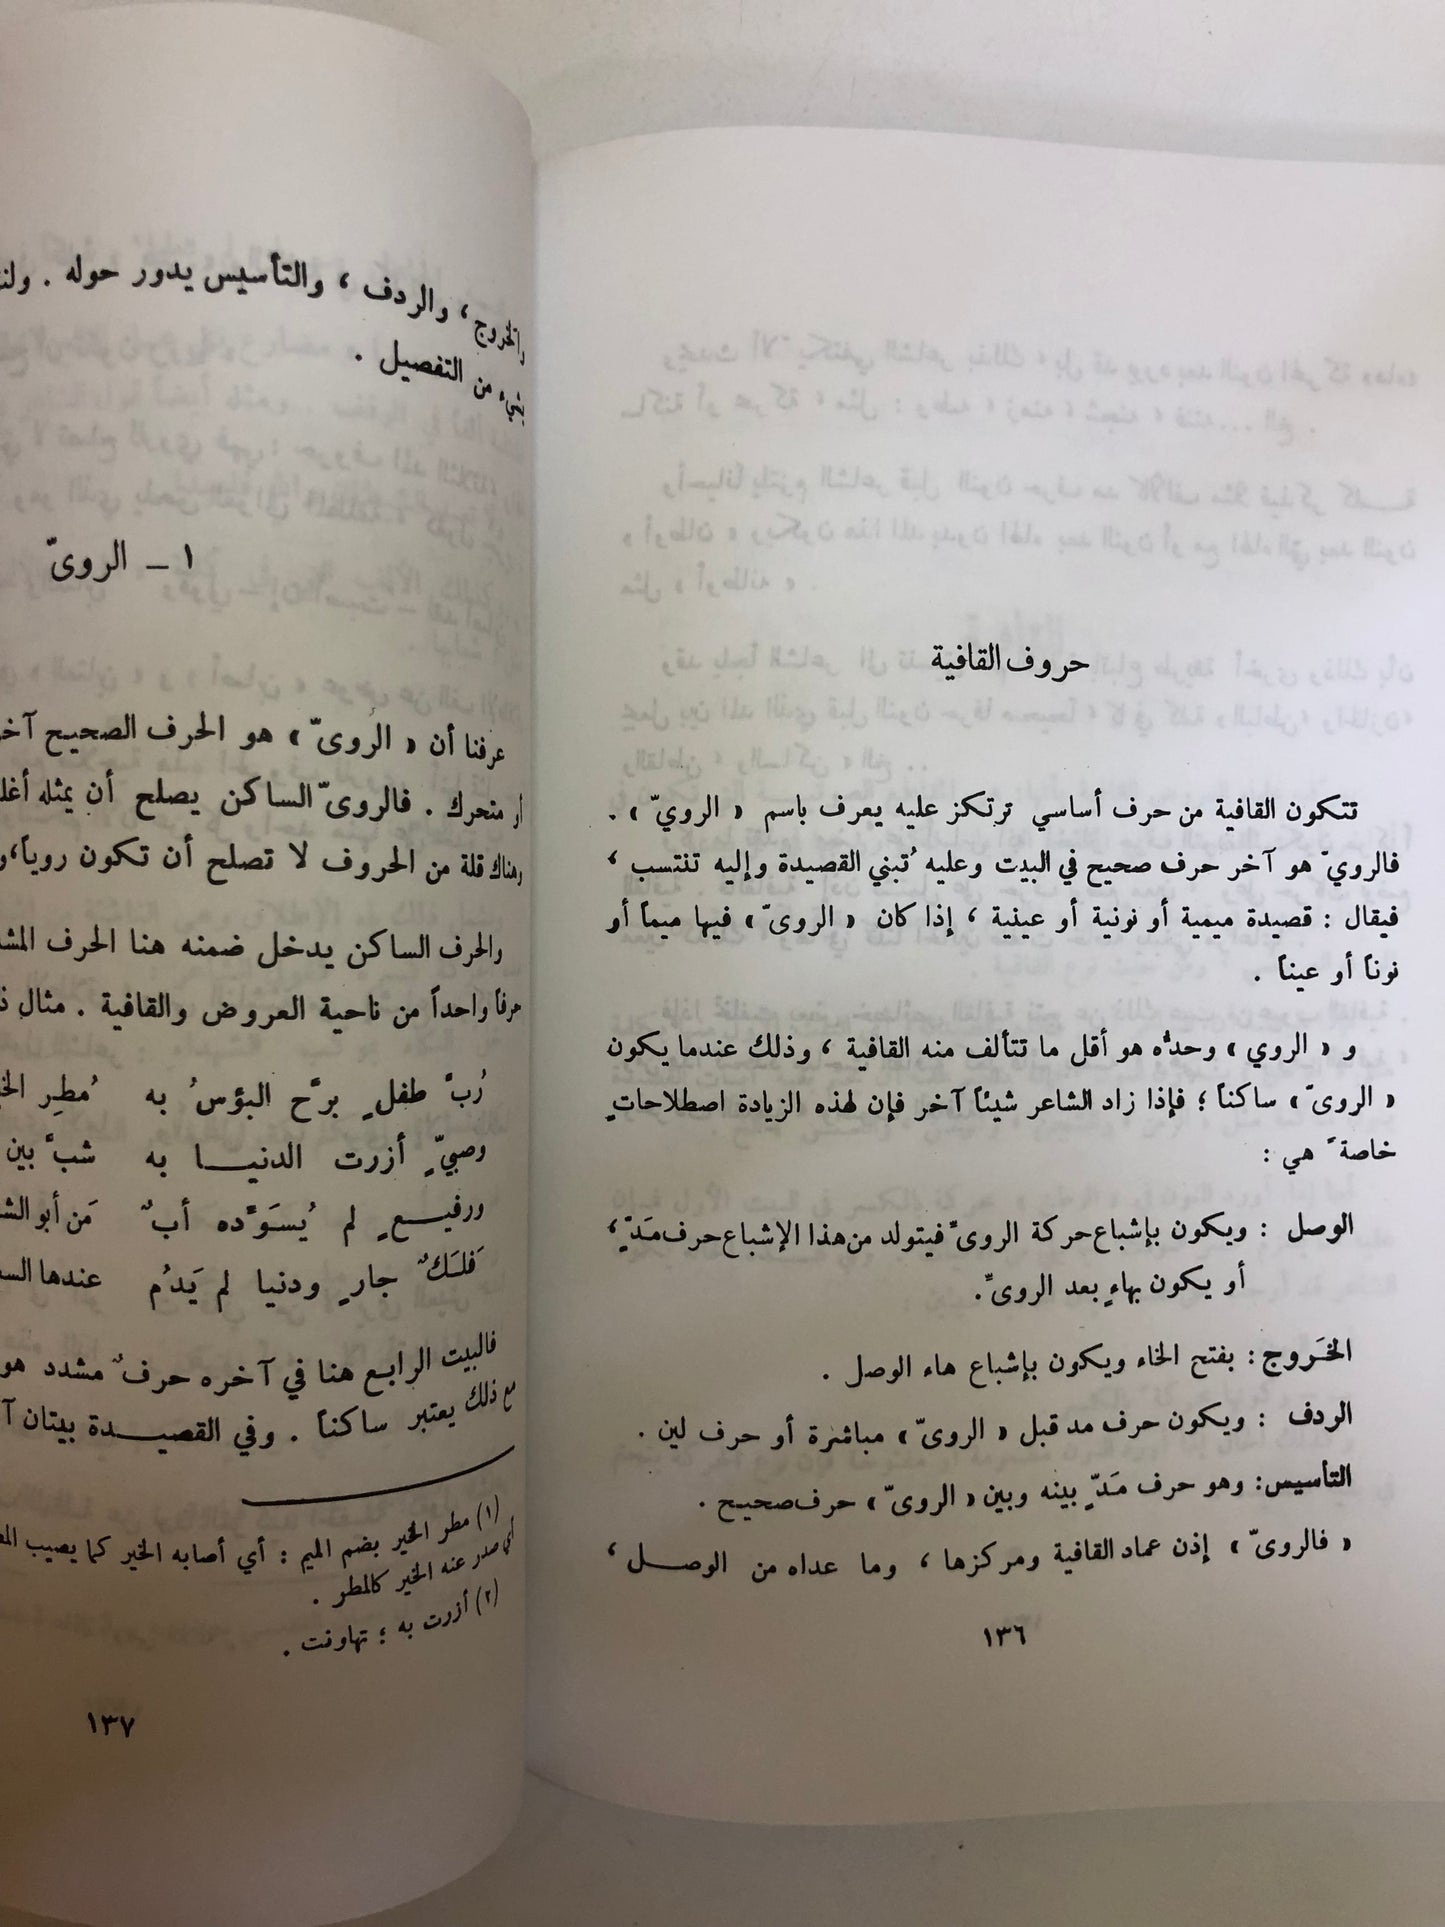 حروف القافية
تتكون القافية من حرف أساسي ترتكز عليه يعرف باسم « الرويّ » .
فالرويّ هو آخر حرف صحيح في البيت وعليه تُبني القصيدة وإليه تنتسب ،
فيقال : قصيدة ميمية أو نونية أو عينية ، إذا كان « الروىّ » فيها ميماً أو
نوناً أو عيناً .
و « الروي » وحدُه هو أقل ما تتألف منه القافية ، وذلك عندما يكون
« الروىّ » ساكناً ؛ فإذا زاد الشاعر شيئاً آخر فإن لهذه الزيادة اصطلاحاتٍ
خاصةً هي :
الوصل : ويكون بإشباع حركة الروىّ فيتولد من هذا الإشباع حرف مَدّ ٍ ،
أو يكون بهاءٍ بعد الروىِّ .
الخَروج : بفتح الخاء ويكون بإشباع هاء الوصل .
الردف : ويكون حرف مد قبل « الروىّ » مباشرة أو حرف لين .
التأسيس : وهو حرف مَدّ ٍ بينه وبين « الروىّ » حرف صحيح .
« فالروىّ » إذن عماد القافية ومركزها ، وما عداه من الوصل ،
١٣٦
والخروج ، والردف ، والتأسيس يدور حوله .
بشيء من التفصيل .
١ – الروىّ
عرفنا أن « الروىّ » هو الحرف الصحيح
أو متحرك . فالروىّ الساكن يصلح أن يمثله
وهناك قلة من الحروف لا تصلح أن تكون روياً ،
والحرف الساكن يدخل ضمنه هنا الحرف
حرفاً واحداً من ناحية العروض والقافية . مثال
رُبَّ طفلٍ برَّح البؤسُ به مُطِر
وصبيّ ٍ أزرت الدنيا به شبَّ بين
ورفيعٍ لم يُسَوِّده أبٌ مَن أبو
فَلَكٌ جارٍ ودنيا لم يَدُم عندها
فالبيت الرابع هنا في آخره حرفٌ مشدد هو
مع ذلك يعتبر ساكناً . وفي القصيدة بيتان
(١) مطر الخير بضم الميم : أي أصابه الخير كما يصيب
أي صدر عنه الخير كالمطر .
(٢) أزرت به : تهاونت .
١٣٧